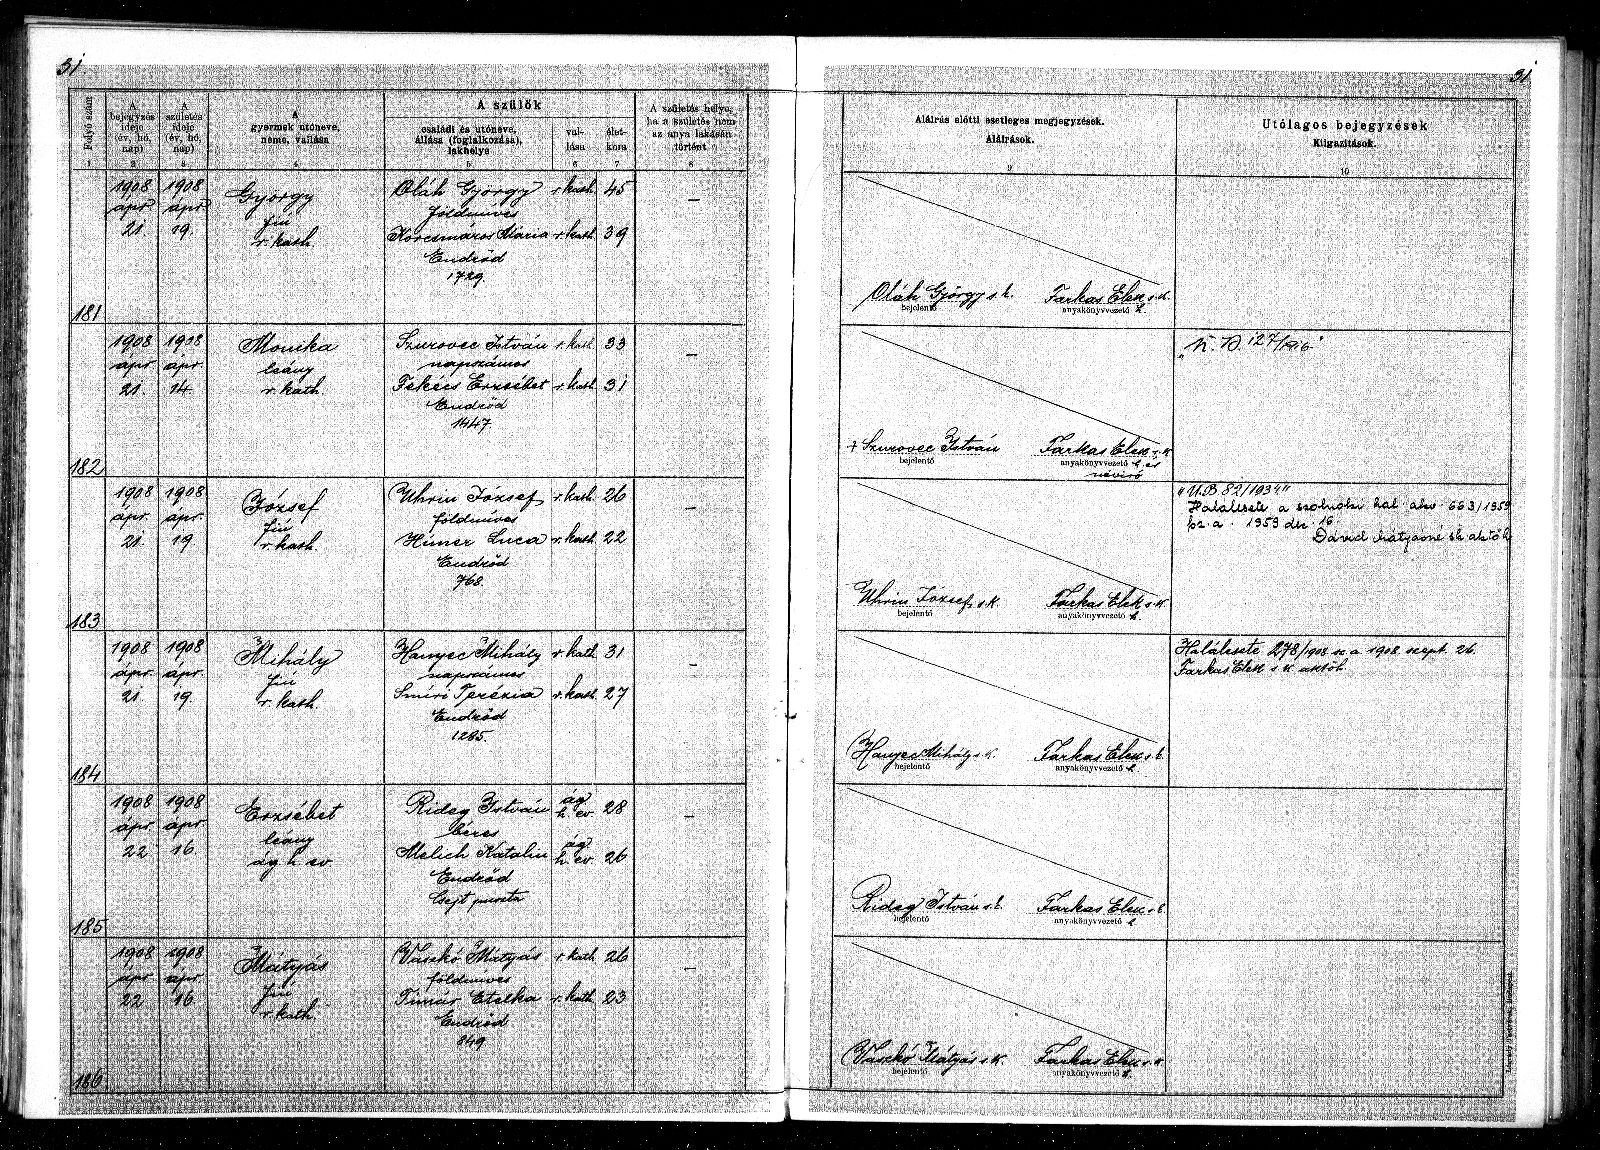 31.
31
Folyó szám
A bejegyzés ideje (év, hó, nap)
A születés ideje (év, hó, nap)
A gyermek utóneve, neme, vallása
A szülők
családi és utóneve, állása (foglalkozása), lakhelye
vallása
életkora
A születés helye, ha a születés nem az anya lakásán történt
Aláírás előtti esetleges megjegyzések.
Aláírások.
Utólagos bejegyzések
Kiigazítások.
1 2 3 4 5 6 7 8 9 10
181
1908 ápr. 21.
1908 ápr. 19.
György
fiú
r. kath.
Oláh György r. kath. 45
földmíves
Korcsmáros Mária r. kath. 39
Endrőd
1729.
–
Oláh György s. k.
bejelentő
Farkas Elek s. k.
anyakönyvvezető h.
182
1908 ápr. 21.
1908 ápr. 14.
Monika
leány
r. kath.
Szurovec István r. kath. 33
napszámos
Fekécs Erzsébet r. kath. 31
Endrőd
1447.
–
+ Szurovec István
bejelentő
Farkas Elek s. k.
anyakönyvvezető h. és
névíró
183
1908 ápr. 21.
1908 ápr. 19
József
fiú
r. kath.
Uhrin József r. kath. 26
földmíves
Hímer Luca r. kath. 22
Endrőd
768.
–
Uhrin József s. k.
bejelentő
Farkas Elek s. k.
anyakönyvvezető h.
"U.B 82/1934"
Halálesete a szolnoki hal. akv. 663/1959
sz. a. 1959 dec. 16
Dávid Mátyásné sk
184
1908 ápr. 21.
1908 ápr. 19.
Mihály
fiú
r. kath.
Hanyec Mihály r. kath. 31
napszámos
Smiró Terézia r. kath. 27
Endrőd
1285.
–
Hanyec Mihály s. k.
bejelentő
Farkas Elek s. k.
anyakönyvvezető h.
Halálesete 278/1908 sz. a 1908 szept. 26.
Farkas Elek s. k.
185
1908 ápr. 22
1908 ápr. 16.
Erzsébet
leány
ág h ev
Rideg István ág h. ev. 28
béres
Melich Katalin ág h. ev. 26
Endrőd
Csejt puszta
–
Rideg István s. k.
bejelentő
Farkas Elek s. k.
anyakönyvvezető h.
186
1908 ápr. 22
1908 ápr. 16
Mátyás
fiú
r. kath.
Vaszkó Mátyás r. kath. 26
földmíves
Tímár Etelka r. kath. 23
Endrőd
849.
–
Vaszkó Mátyás s. k.
bejelentő
Farkas Elek s. k.
anyakönyvvezető h.